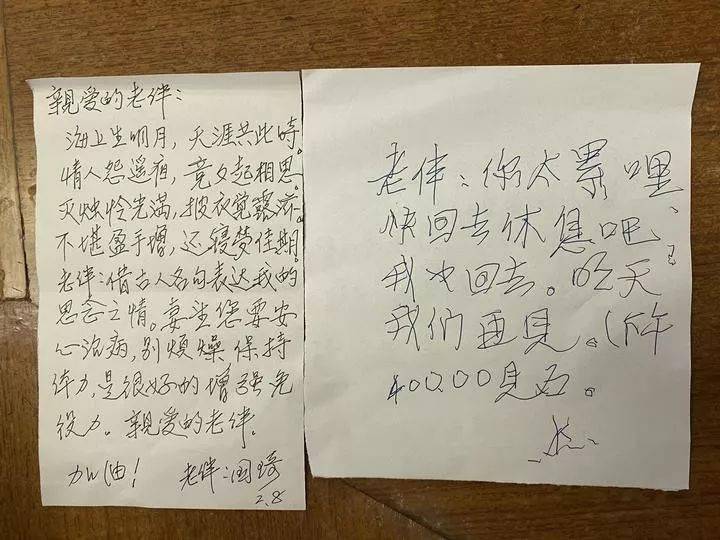 親爱的老伴：
海上生明月，天涯共此時。
情人怨遥夜，竟夕起相思。
灭烛怜光满，披衣觉露滋。
不堪盈手增，还寝梦佳期。
老伴：借古人名句表达我的
思念之情。妻望您要安
心治病，别煩燥保持
体力，是很好的增强免
役力。親爱的老伴。
加油！ 老伴：国琦
2.8
老伴：你太累哩、
快回去休息吧、
我也回去。明天
我们再見。（下午
見